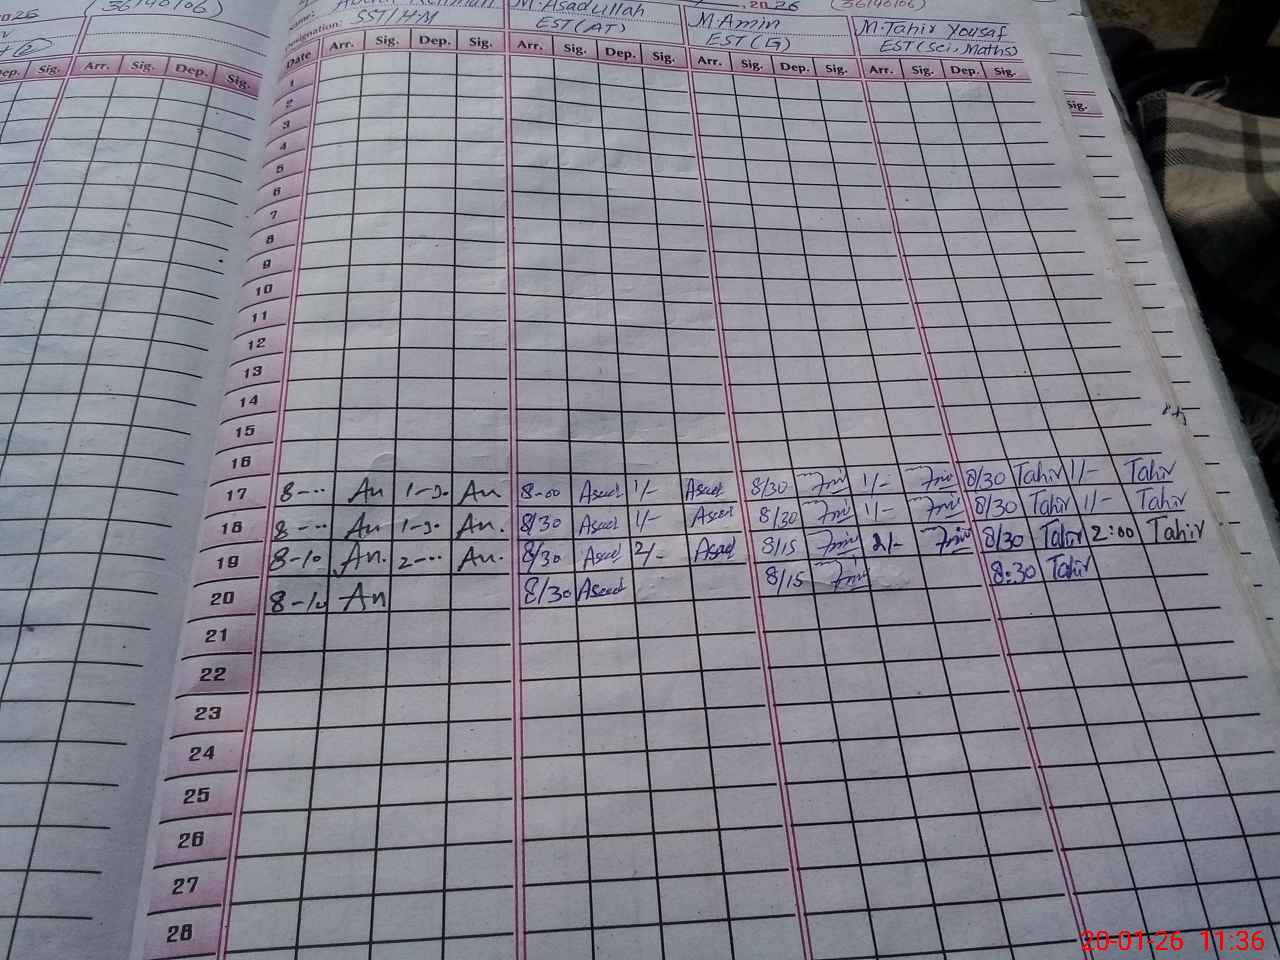 2026 (36140106) , 2026 (36140106)
Name: Abdur Rehman M.Asadullah M.Amin M.Tahir Yousaf
Designation: SST/HM EST(AT) EST(G) EST(Sci.Maths)
Dep. Sig. Arr. Sig. Dep. Sig.
Date Arr. Sig. Dep. Sig. Arr. Sig. Dep. Sig. Arr. Sig. Dep. Sig. Arr. Sig. Dep. Sig.
Sig.
1
2
3
4
5
6
7
8
9
10
11
12
13
14
15
16
17 8-... An 1-30 An 8-00 Asad 1/- Asad 8/30 1/- 8/30 Tahir 1/- Tahir
18 8-... An 1-30 An. 8/30 Asad 1/- Asad 8/30 1/- 8/30 Tahir 1/- Tahir
19 8-10 An. 2-... An. 8/30 Asad 2/- Asad 8/15 2/- 8/30 Tahir 2:00 Tahir
20 8-10 An 8/30 Asad 8/15 8:30 Tahir
21
22
23
24
25
26
27
28
20-01-26 11:36